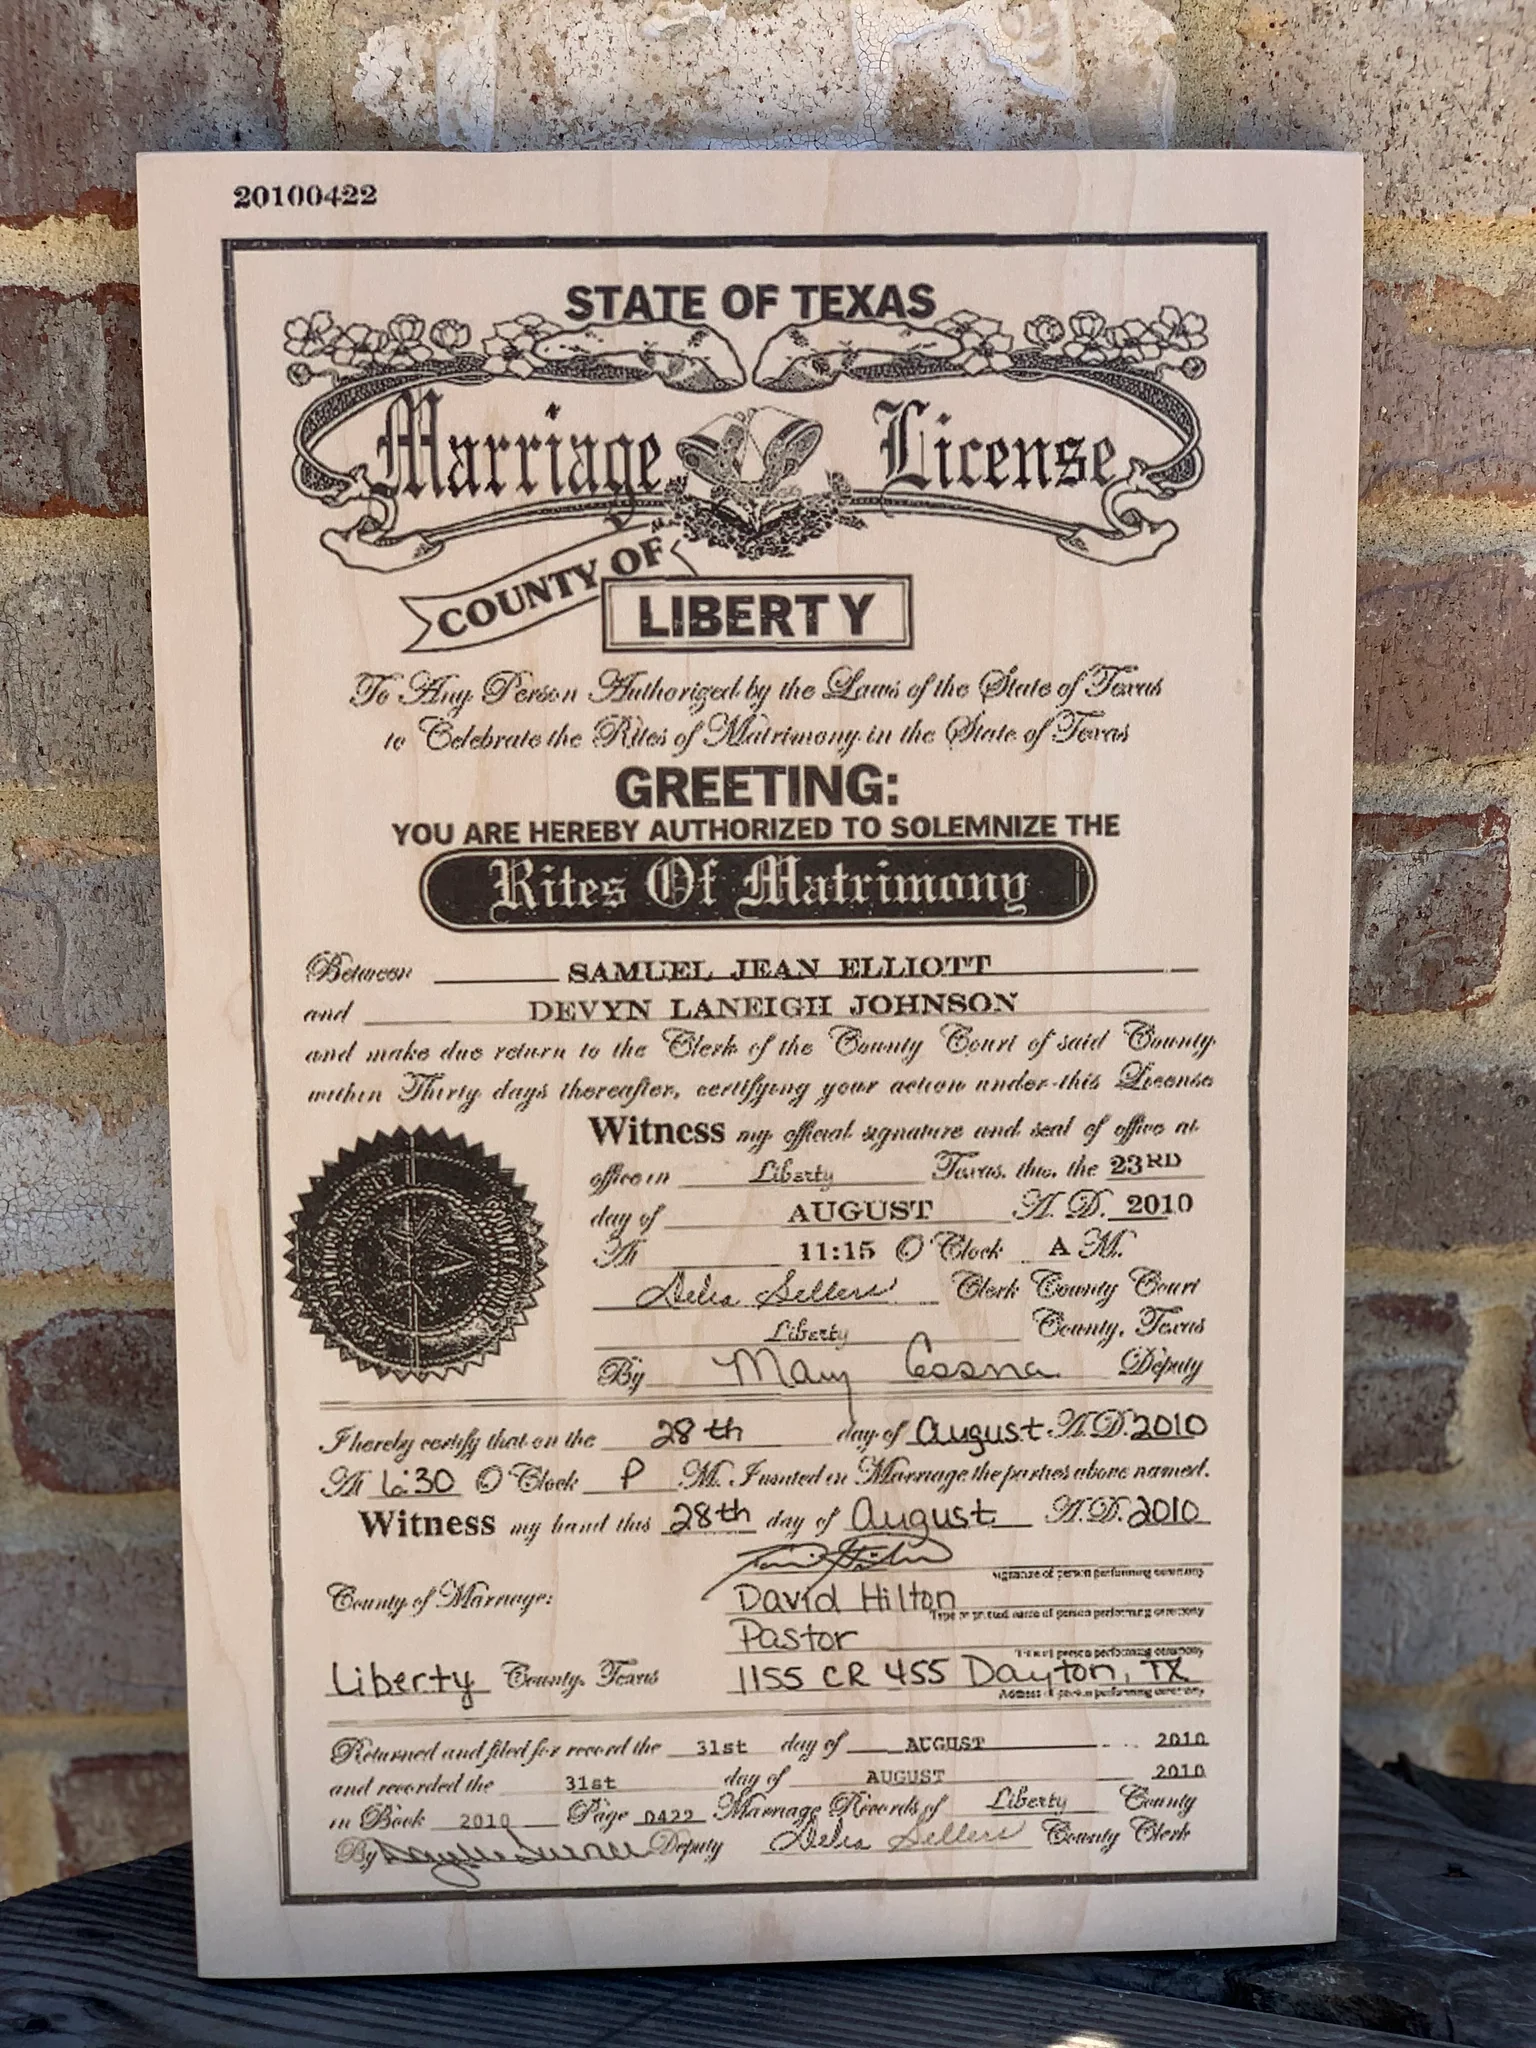 20100422
STATE OF TEXAS
Marriage License
COUNTY OF
LIBERTY
To Any Person Authorized by the Laws of the State of Texas
to Celebrate the Rites of Matrimony in the State of Texas
GREETING:
YOU ARE HEREBY AUTHORIZED TO SOLEMNIZE THE
Rites Of Matrimony
Between SAMUEL JEAN ELLIOTT
and DEVYN LANEIGH JOHNSON
and make due return to the Clerk of the County Court of said County
within Thirty days thereafter, certifying your action under this License
Witness my official signature and seal of office at
office in Liberty Texas, this, the 23RD
day of AUGUST A. D. 2010
At 11:15 O'Clock A M.
Delia Sellers Clerk County Court
Liberty County, Texas
By Mary Deputy
I hereby certify that on the 28th day of August A.D. 2010
At 6:30 O'Clock P M. I united in Marriage the parties above named.
Witness my hand this 28th day of August A.D. 2010
Signature of person performing ceremony
County of Marriage:
David Hilton
Type or printed name of person performing ceremony
Pastor
Title of person performing ceremony
Liberty County, Texas
1155 CR 455 Dayton, TX
Address of person performing ceremony
Returned and filed for record the 31st day of AUGUST 2010
and recorded the 31st day of AUGUST 2010
in Book 2010 Page 0422 Marriage Records of Liberty County
By Deputy Delia Sellers County Clerk